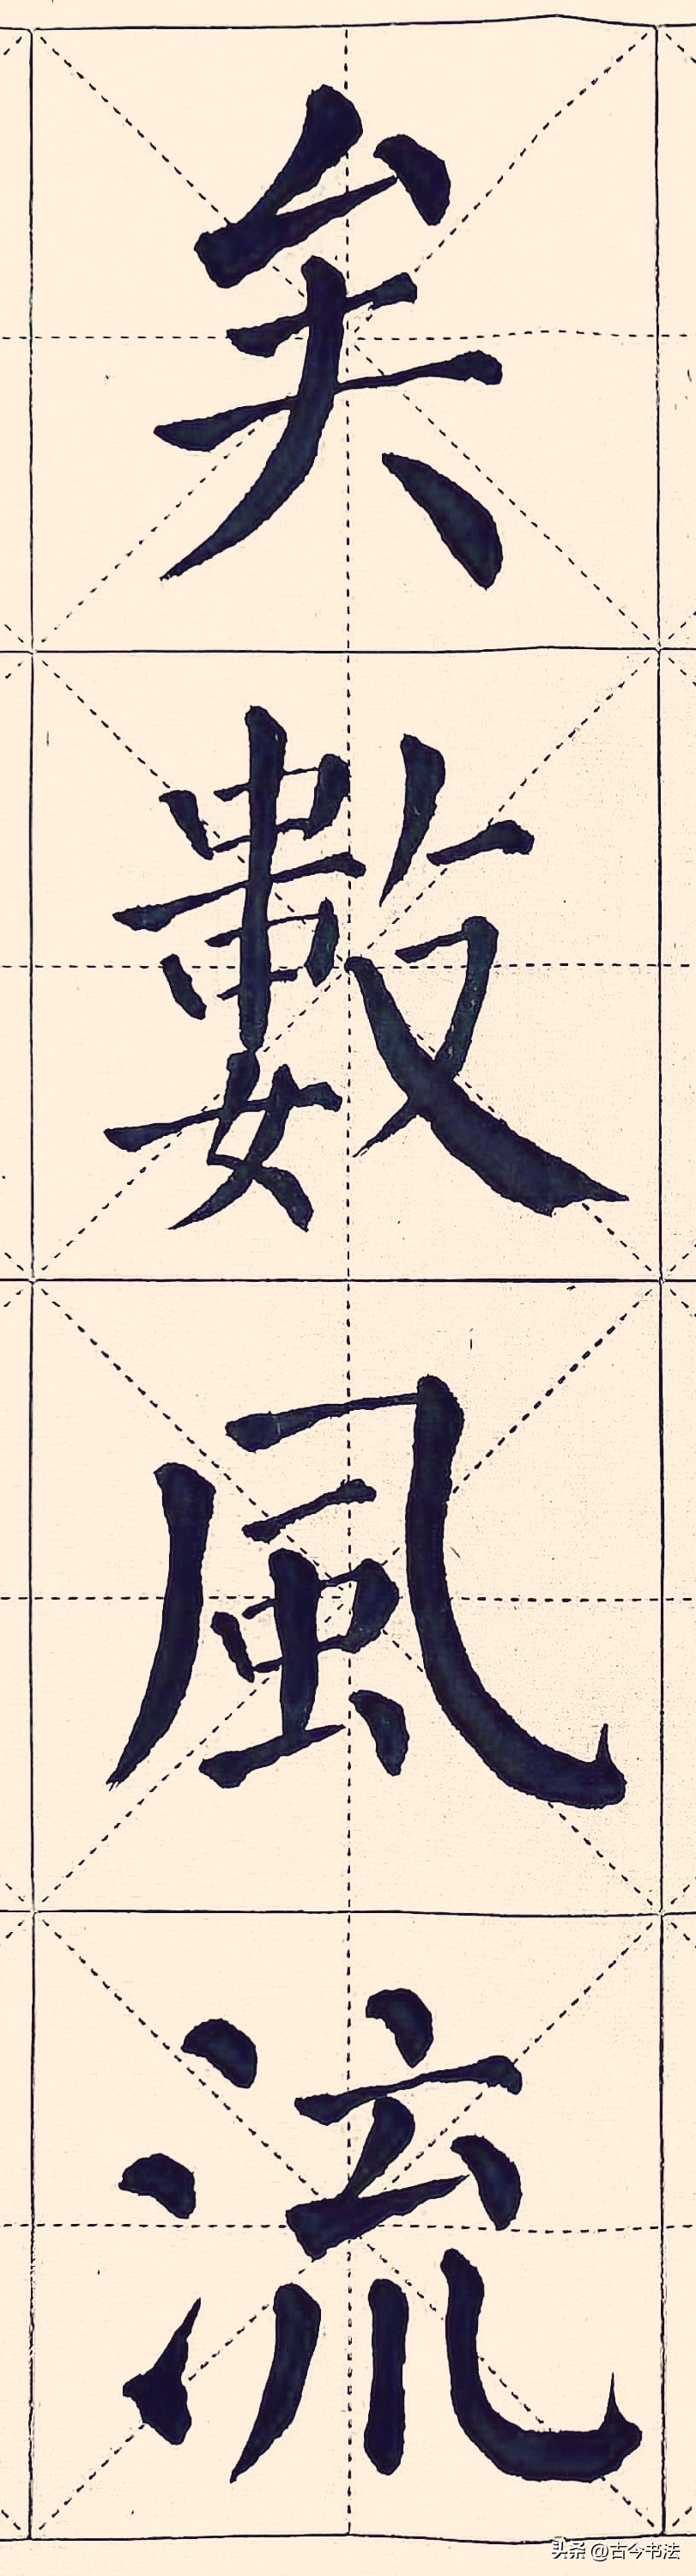 矣
數
風
流
头条 @古今书法